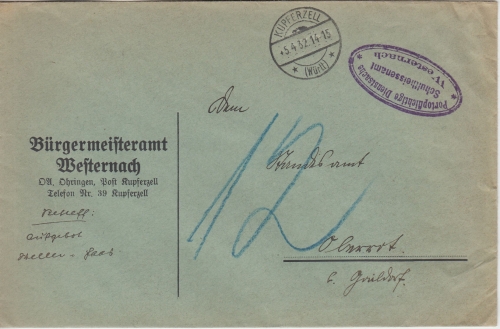 KUPFERZELL
*5.4.32.14-15
* (WÜRTT) *
Portopflichtige Dienstsache
Schultheissenamt
Westernach
Dem
Bürgermeisteramt
Westernach
OA. Öhringen, Post Kupferzell
Telefon Nr. 39 Kupferzell
Standesamt
12
Betreff:
Aufgebot
Oberrot.
b. Gaildorf.